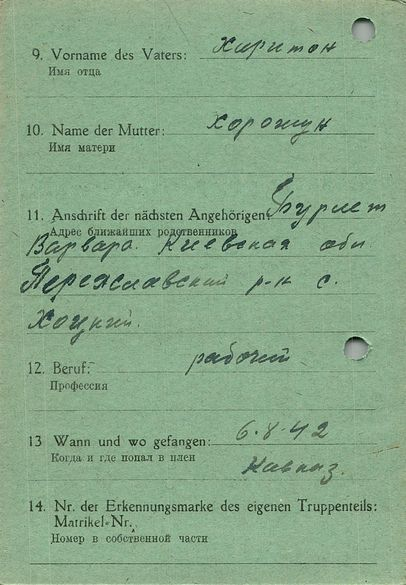 9. Vorname des Vaters: Харитон
Имя отца
10. Name der Mutter: Хорошун
Имя матери
11. Anschrift der nächsten Angehörigen:
Адрес ближайших родственников
Варвара. Киевская обл.
Переяславский р-н с.
Хоцкий.
12. Beruf: рабочий
Профессия
13 Wann und wo gefangen: 6.8.42
Когда и где попал в плен
Кавказ.
14. Nr. der Erkennungsmarke des eigenen Truppenteils:
Matrikel-Nr.
Номер в собственной части